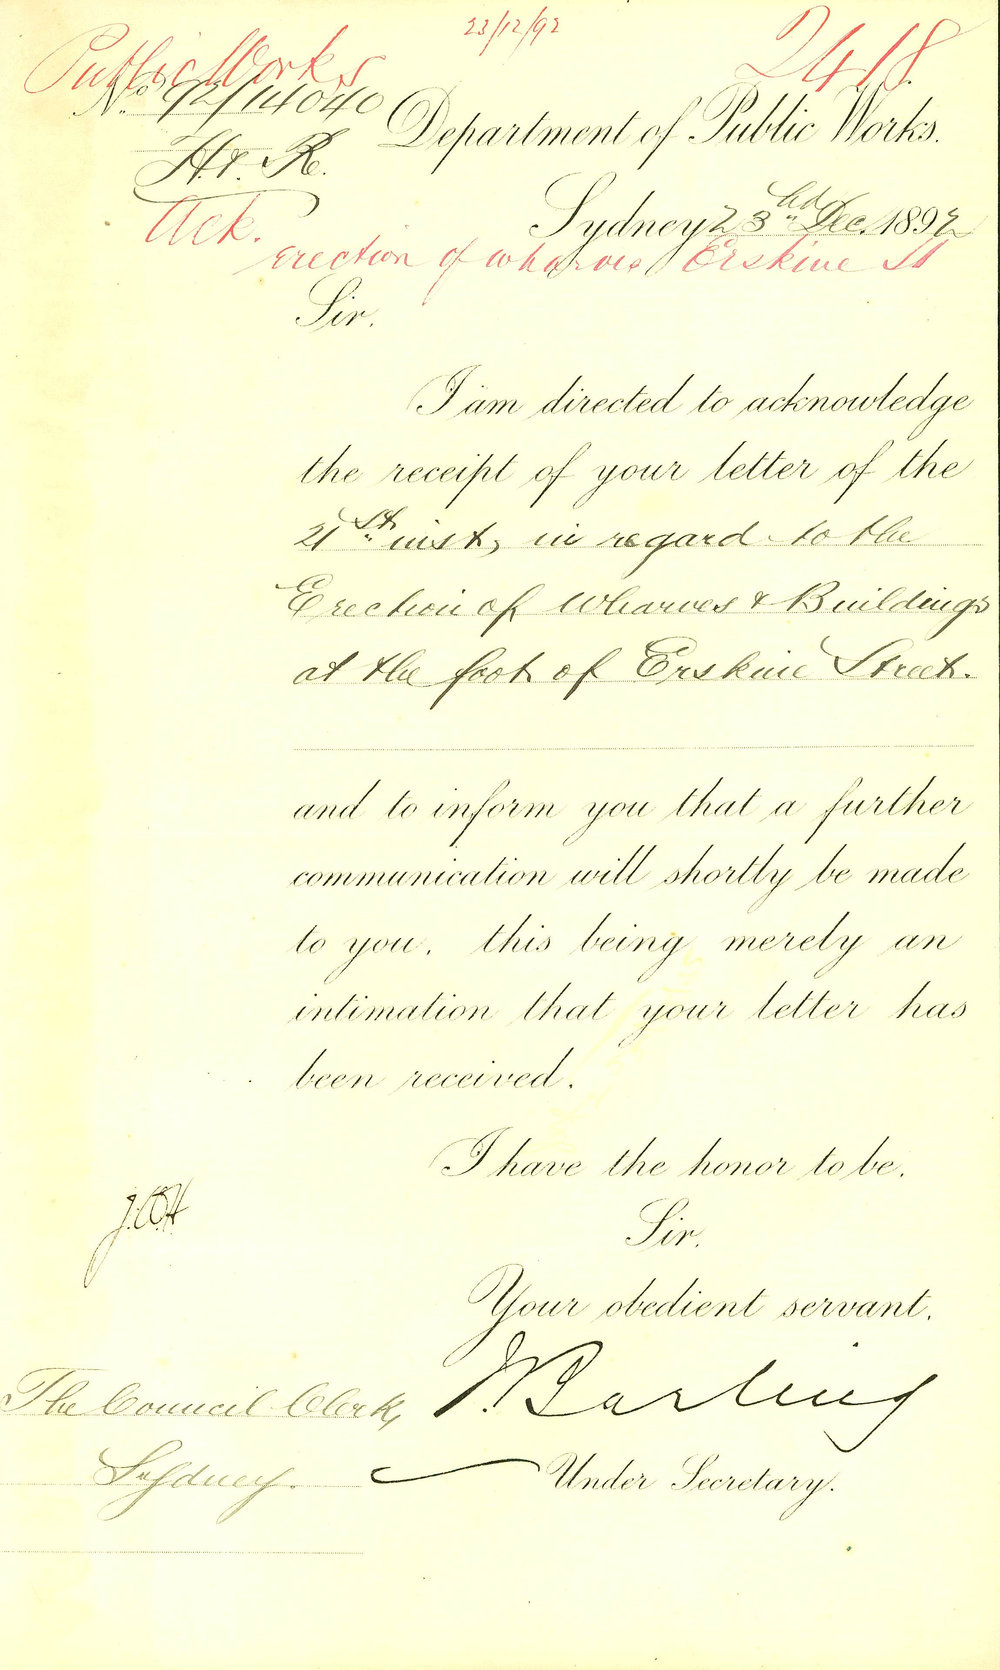 23/12/92
Public Works
2418
No. 92/14040
Department of Public Works.
H. & R.
Sydney 23rd Dec. 1892
Ack.
Erection of wharves Erskine St
Sir.
I am directed to acknowledge
the receipt of your letter of the
21st inst, in regard to the
Erection of Wharves & Buildings
at the foot of Erskine Street.
and to inform you that a further
communication will shortly be made
to you, this being merely an
intimation that your letter has
been received.
I have the honor to be.
Sir.
J.W.H
Your obedient servant.
J Barling
The Council Clerk,
Sydney.
Under Secretary.